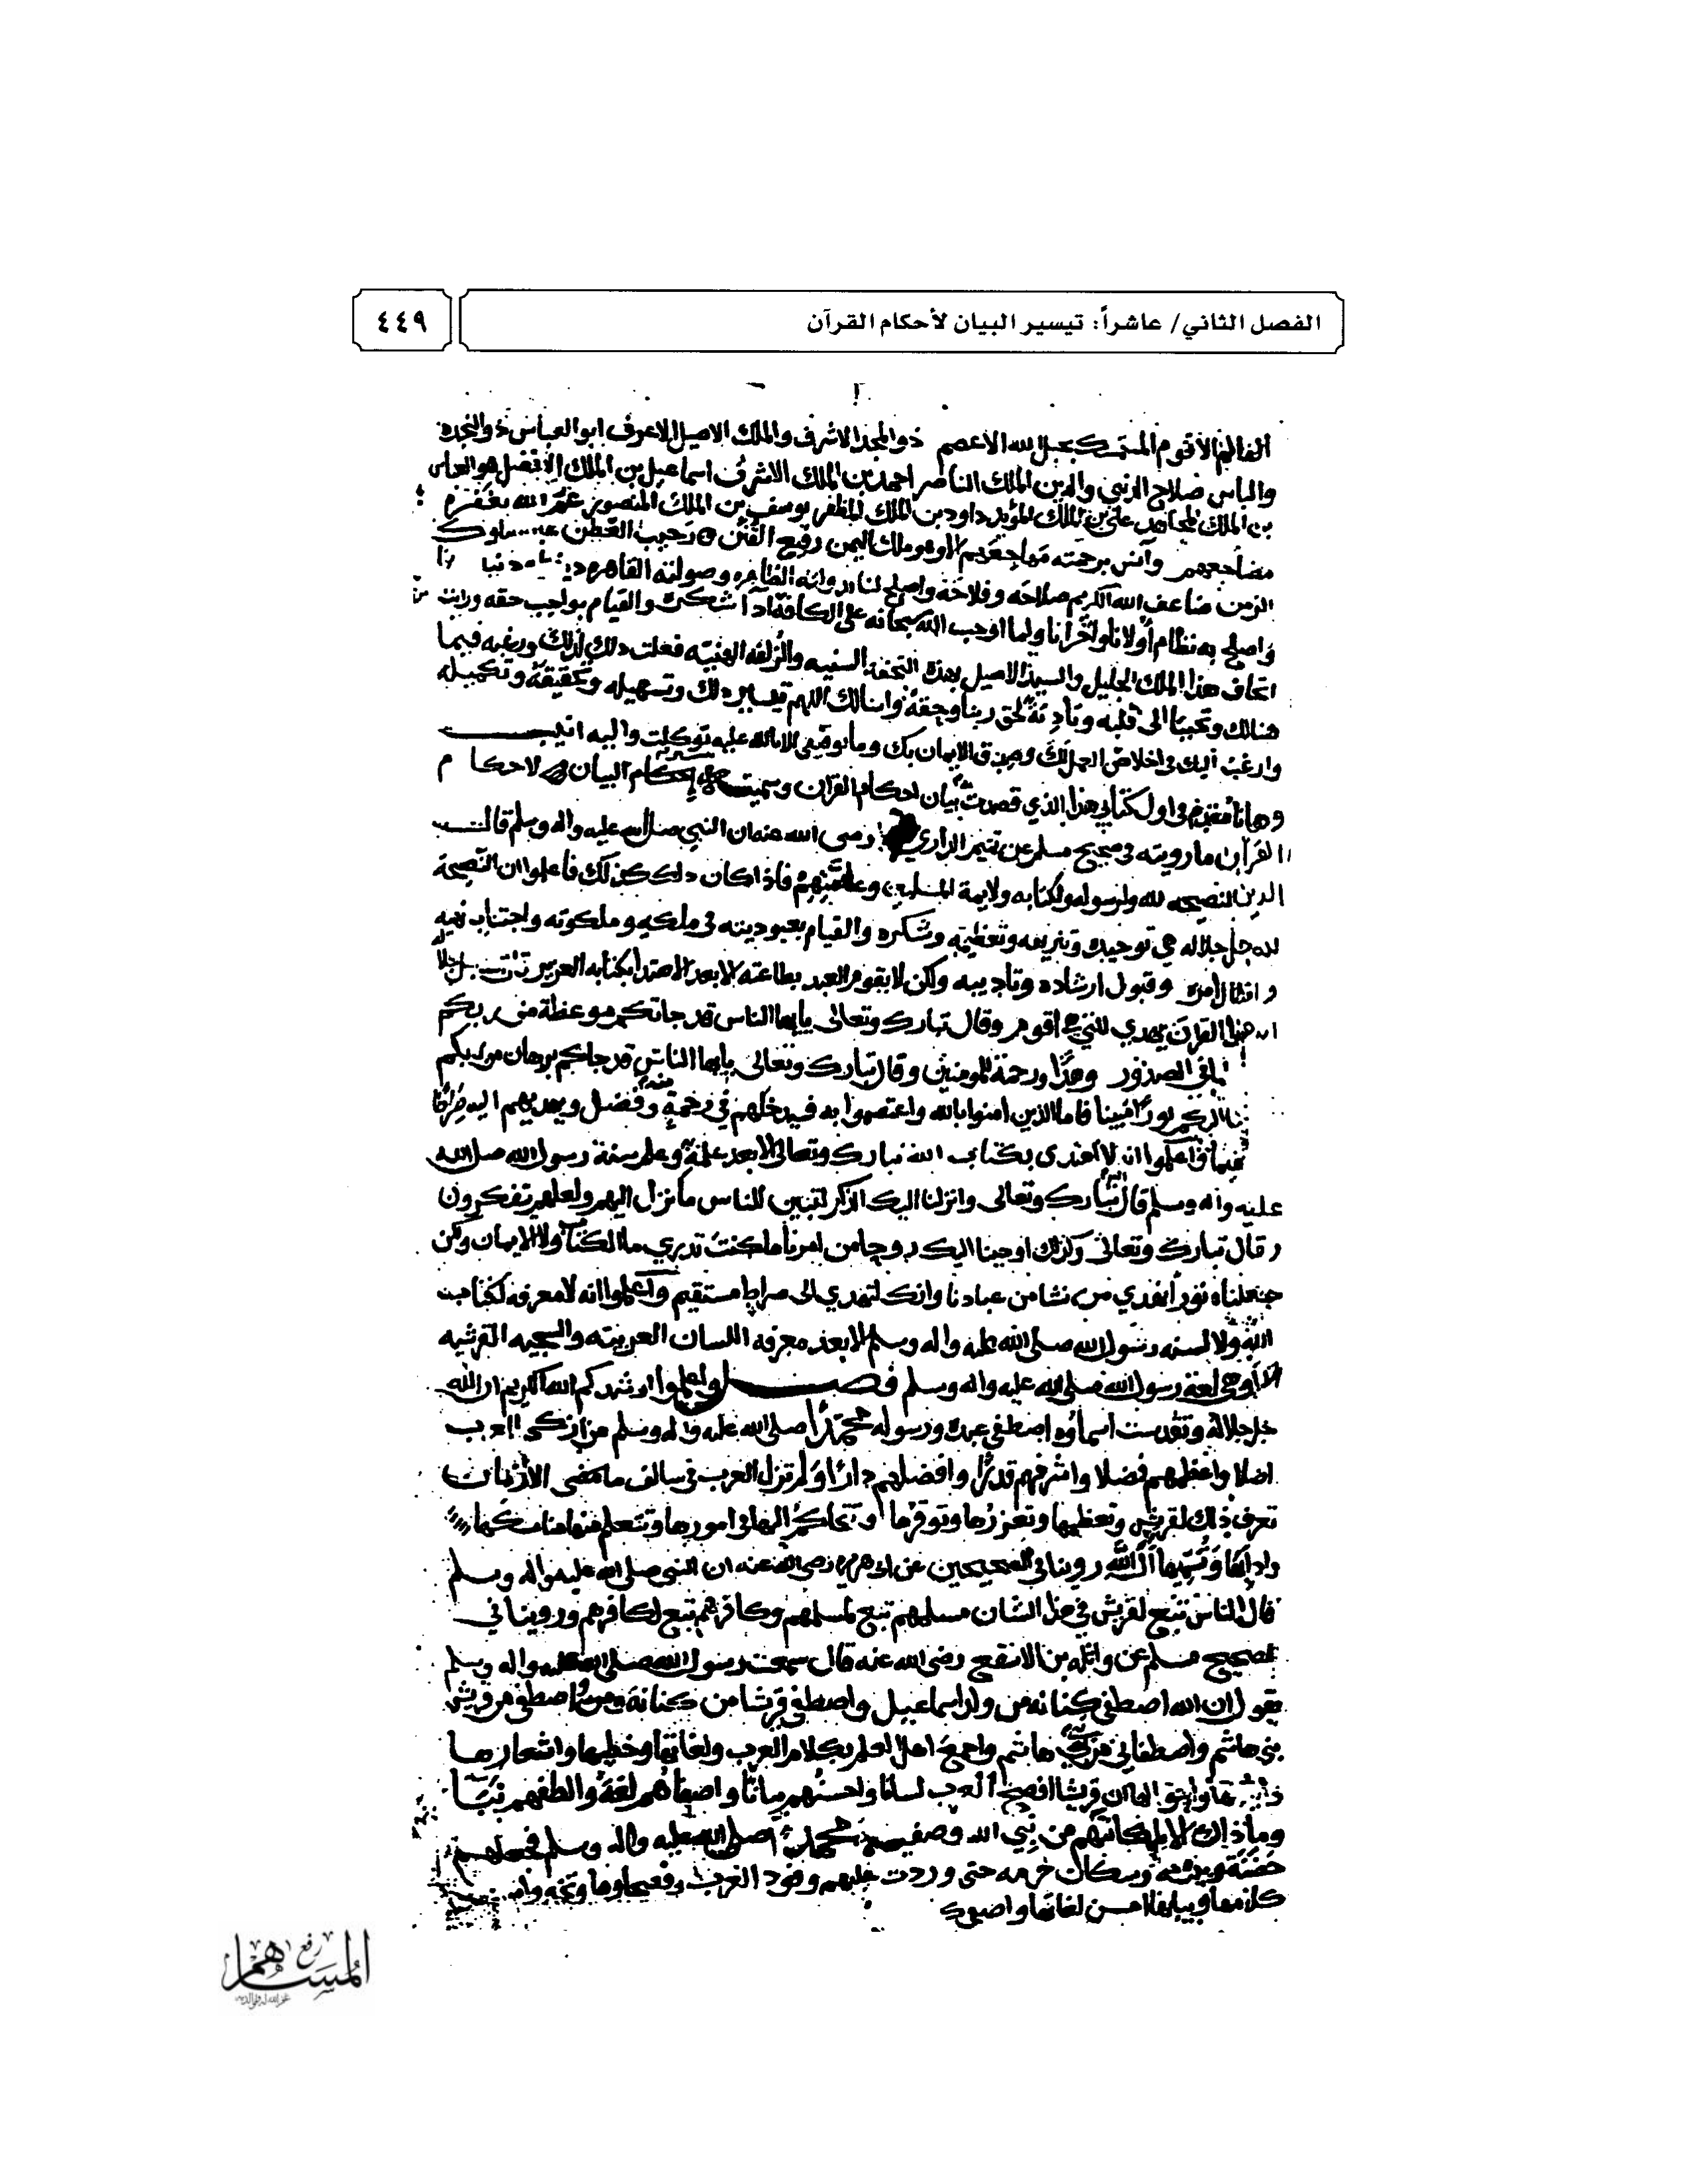 الفصل الثاني/ عاشراً: تيسير البيان لأحكام القرآن
٤٤٩
الاقوم المتمسك بحبل الله الاعصم ذو المجد الاشرف والملك الاصيل الاعرف ابو العباس ذو النجدة
والباس صلاح الدنيى والدين الملك الناصر احمد بن الملك الاشرف اسماعيل بن الملك الافضل هو العباس
بن الملك المجاهد علي بن الملك المؤيد داود بن الملك المظفر يوسف بن الملك المنصور عمر الله
مضاجعهم وآنس برحمته الا وهو ملك اليمن رفيع رحيب العطن
الزمن ضاعف الله الكريم صلاحه وفلاحه واصلح لنا بدولته الظاهره وصولته القاهره
واصلح به نظام أولانا واخرانا ولما اوجب الله سبحانه على الكافة شكره والقيام بواجب حقه ورايت
اتحاف هذا الملك الجليل والسيد الاصيل بهذه التحفة السنيه والزلفه فعلت ذلك لذلك ورغبه فيما
هنالك وتحببا الى قلبه وتأدية لحق ربنا وحقه واسالك اللهم تيسير ذلك وتسهيله وتحقيقه وتكميله
وارغب اليك في اخلاص العمل لك وصدق الايمان بك وما توفيقي الا بالله عليه توكلت واليه انيب
وها نا مقدم في اول كتابي هذا الذي قصدت بيان احكام القران وسميته البيان لاحكام
القرآن ما رويته في صحيح مسلم عن تميم الداري رضى الله عنه ان النبي صلى الله عليه واله وسلم قال
الدين النصيحه لله ولرسوله ولكتابه ولايمة المسلمين وعامتهم فاذا كان ذلك كذلك فاعلموا ان النصيحة
لله جل جلاله هي توحيده وتنزيهه وتعظيمه وشكره والقيام بعبوديته في ملكه وملكوته واجتناب نهيه
وامتثال امره وقبول ارشاده وتاديبه ولكن لا يقوم العبد بطاعته الا بعد الاهتدا بكتابه العزيز
ان هذا القرآن يهدي للتي هي اقوم وقال تبارك وتعالى يايها الناس قد جاتكم موعظة من ربكم
في الصدور وهدًا ورحمة للمومنين وقال تبارك وتعالى يايها الناس قد جاكم برهان من ربكم
اليكم نورًا مبينا فاما الذين امنوا بالله واعتصموا به فسيدخلهم في رحمة منه وفضل ويهديهم اليه صراطا
واعلموا انه لا يهتدى بكتاب الله تبارك وتعالى الا بعد علمه وعلم سنة رسول الله صلى الله
عليه واله وسلم قال الله تبارك وتعالى وانزلنا اليك الذكر لتبين للناس ما نزل اليهم ولعلهم يتفكرون
وقال تبارك وتعالى وكذلك اوحينا اليك روحا من امرنا ما كنت تدري ما الكتاب ولا الايمان ولكن
جعلناه نورا نهدي من نشا من عبادنا وانك لتهدي الى صراط مستقيم واعلموا انه لا معرفه لكتاب
الله ولا لسنه رسول الله صلى الله عليه واله وسلم الا بعد معرفه اللسان العربيه والسجيه القرشيه
الا وهى لغة رسول الله صلى الله عليه واله وسلم فصل واعلموا ارشدكم الله الكريم ان الله
جل جلاله وتقدست اسماوه اصطفى عبده ورسوله محمدًا صلى الله عليه واله وسلم من ازكى العرب
اصلا واعظمهم فضلا واشرفهم قدرًا وافضلهم دارًا ولم تزل العرب في سالف ما مضى الازمان
تعرف ذلك لقريش وتعظيمها وتعزرها وتوقرها وتتحاكم اليها في امورها وتتعلم منها مناسكها
وادابها وتسميها آل الله روينا في الصحيحين عن ابى هريره رضى الله عنه ان النبي صلى الله عليه واله وسلم
قال الناس تبع لقريش في هذا الشان مسلمهم تبع لمسلمهم وكافرهم تبع لكافرهم وروينا في
صحيح مسلم عن واثله بن الاسقع رضى الله عنه قال سمعت رسول الله صلى الله عليه واله وسلم
يقول ان الله اصطفى كنانه من ولد اسماعيل واصطفى قريشا من كنانة واصطفى من قريش
بني هاشم واصطفاني من بني هاشم واجمع اهل العلم بكلام العرب ولغاتها وخطبها واشعارها
ان قريشا افصح العرب لسانا واحسنهم بيانًا واصفاهم لغة والطفهم
وما ذاك الا لمكانهم من نبي الله وصفيه محمد صلى الله عليه واله وسلم فجعلهم
وسكان حرمه حتى وردت عليهم وفود العرب
احسن لغاتها
المساهم
رفع
غفر الله له ولوالديه